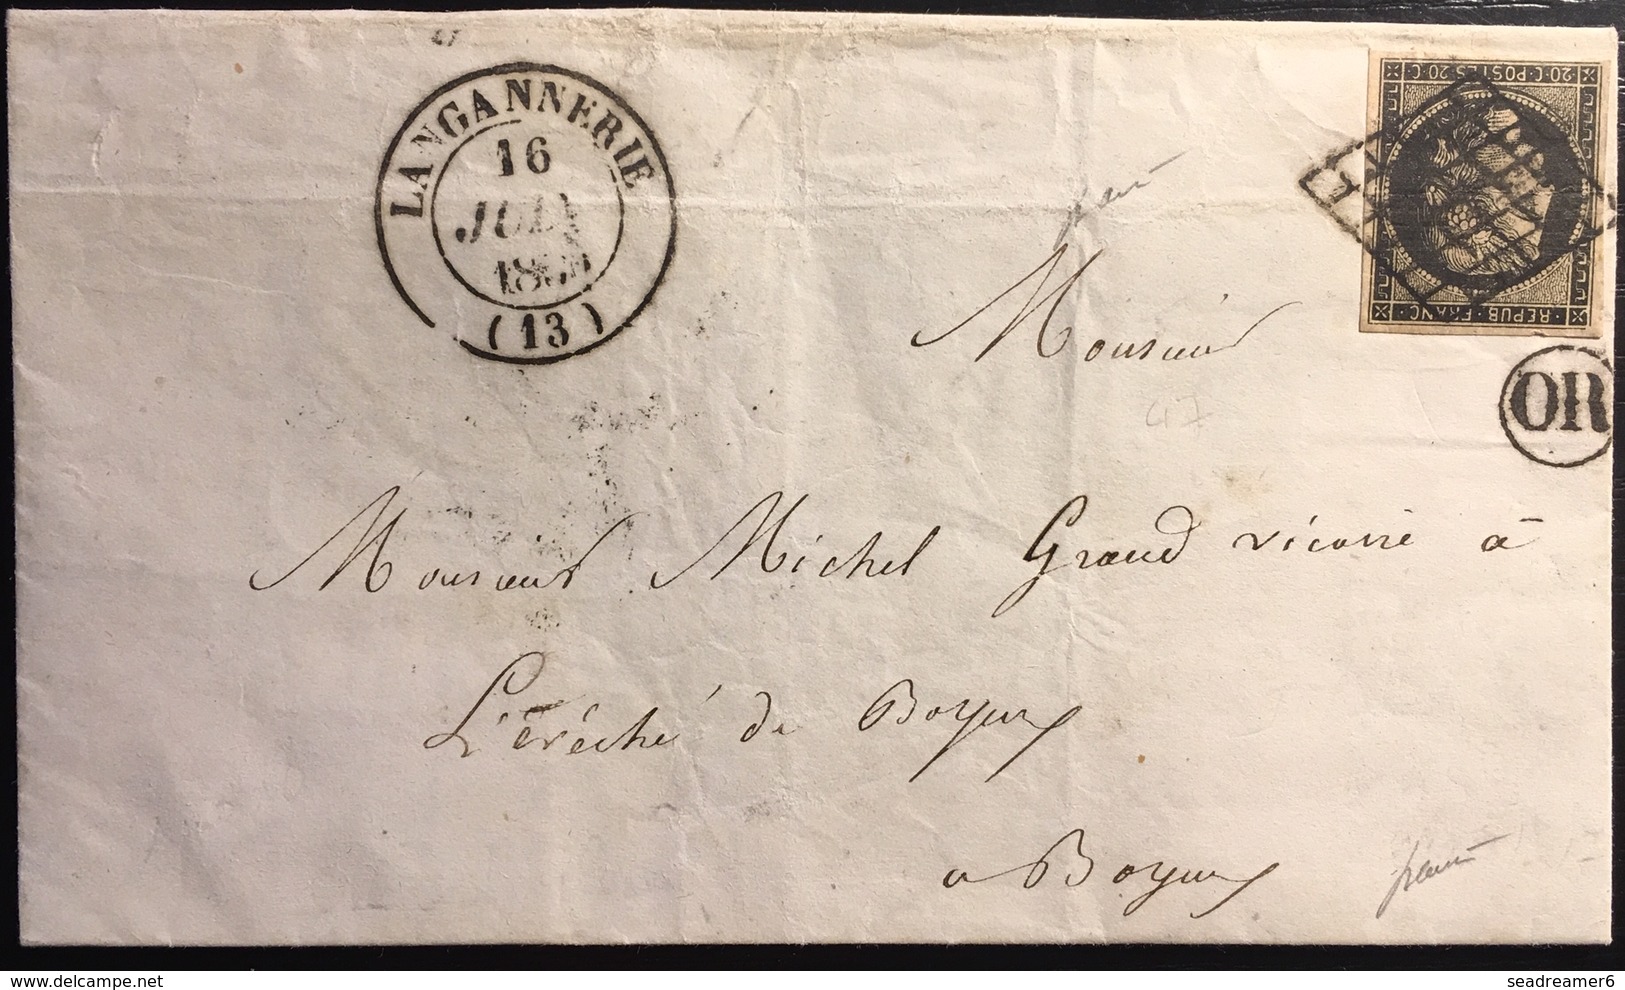 LANGANNERIE
16
(13)
20·C·POSTES·20·C
REPUB·FRANC·
OR
Monsieur
47
Monsieur Michel Grand vicaire à
L'évêché de Bayeux
a Bayeux
www.delcampe.net
seadreamer6